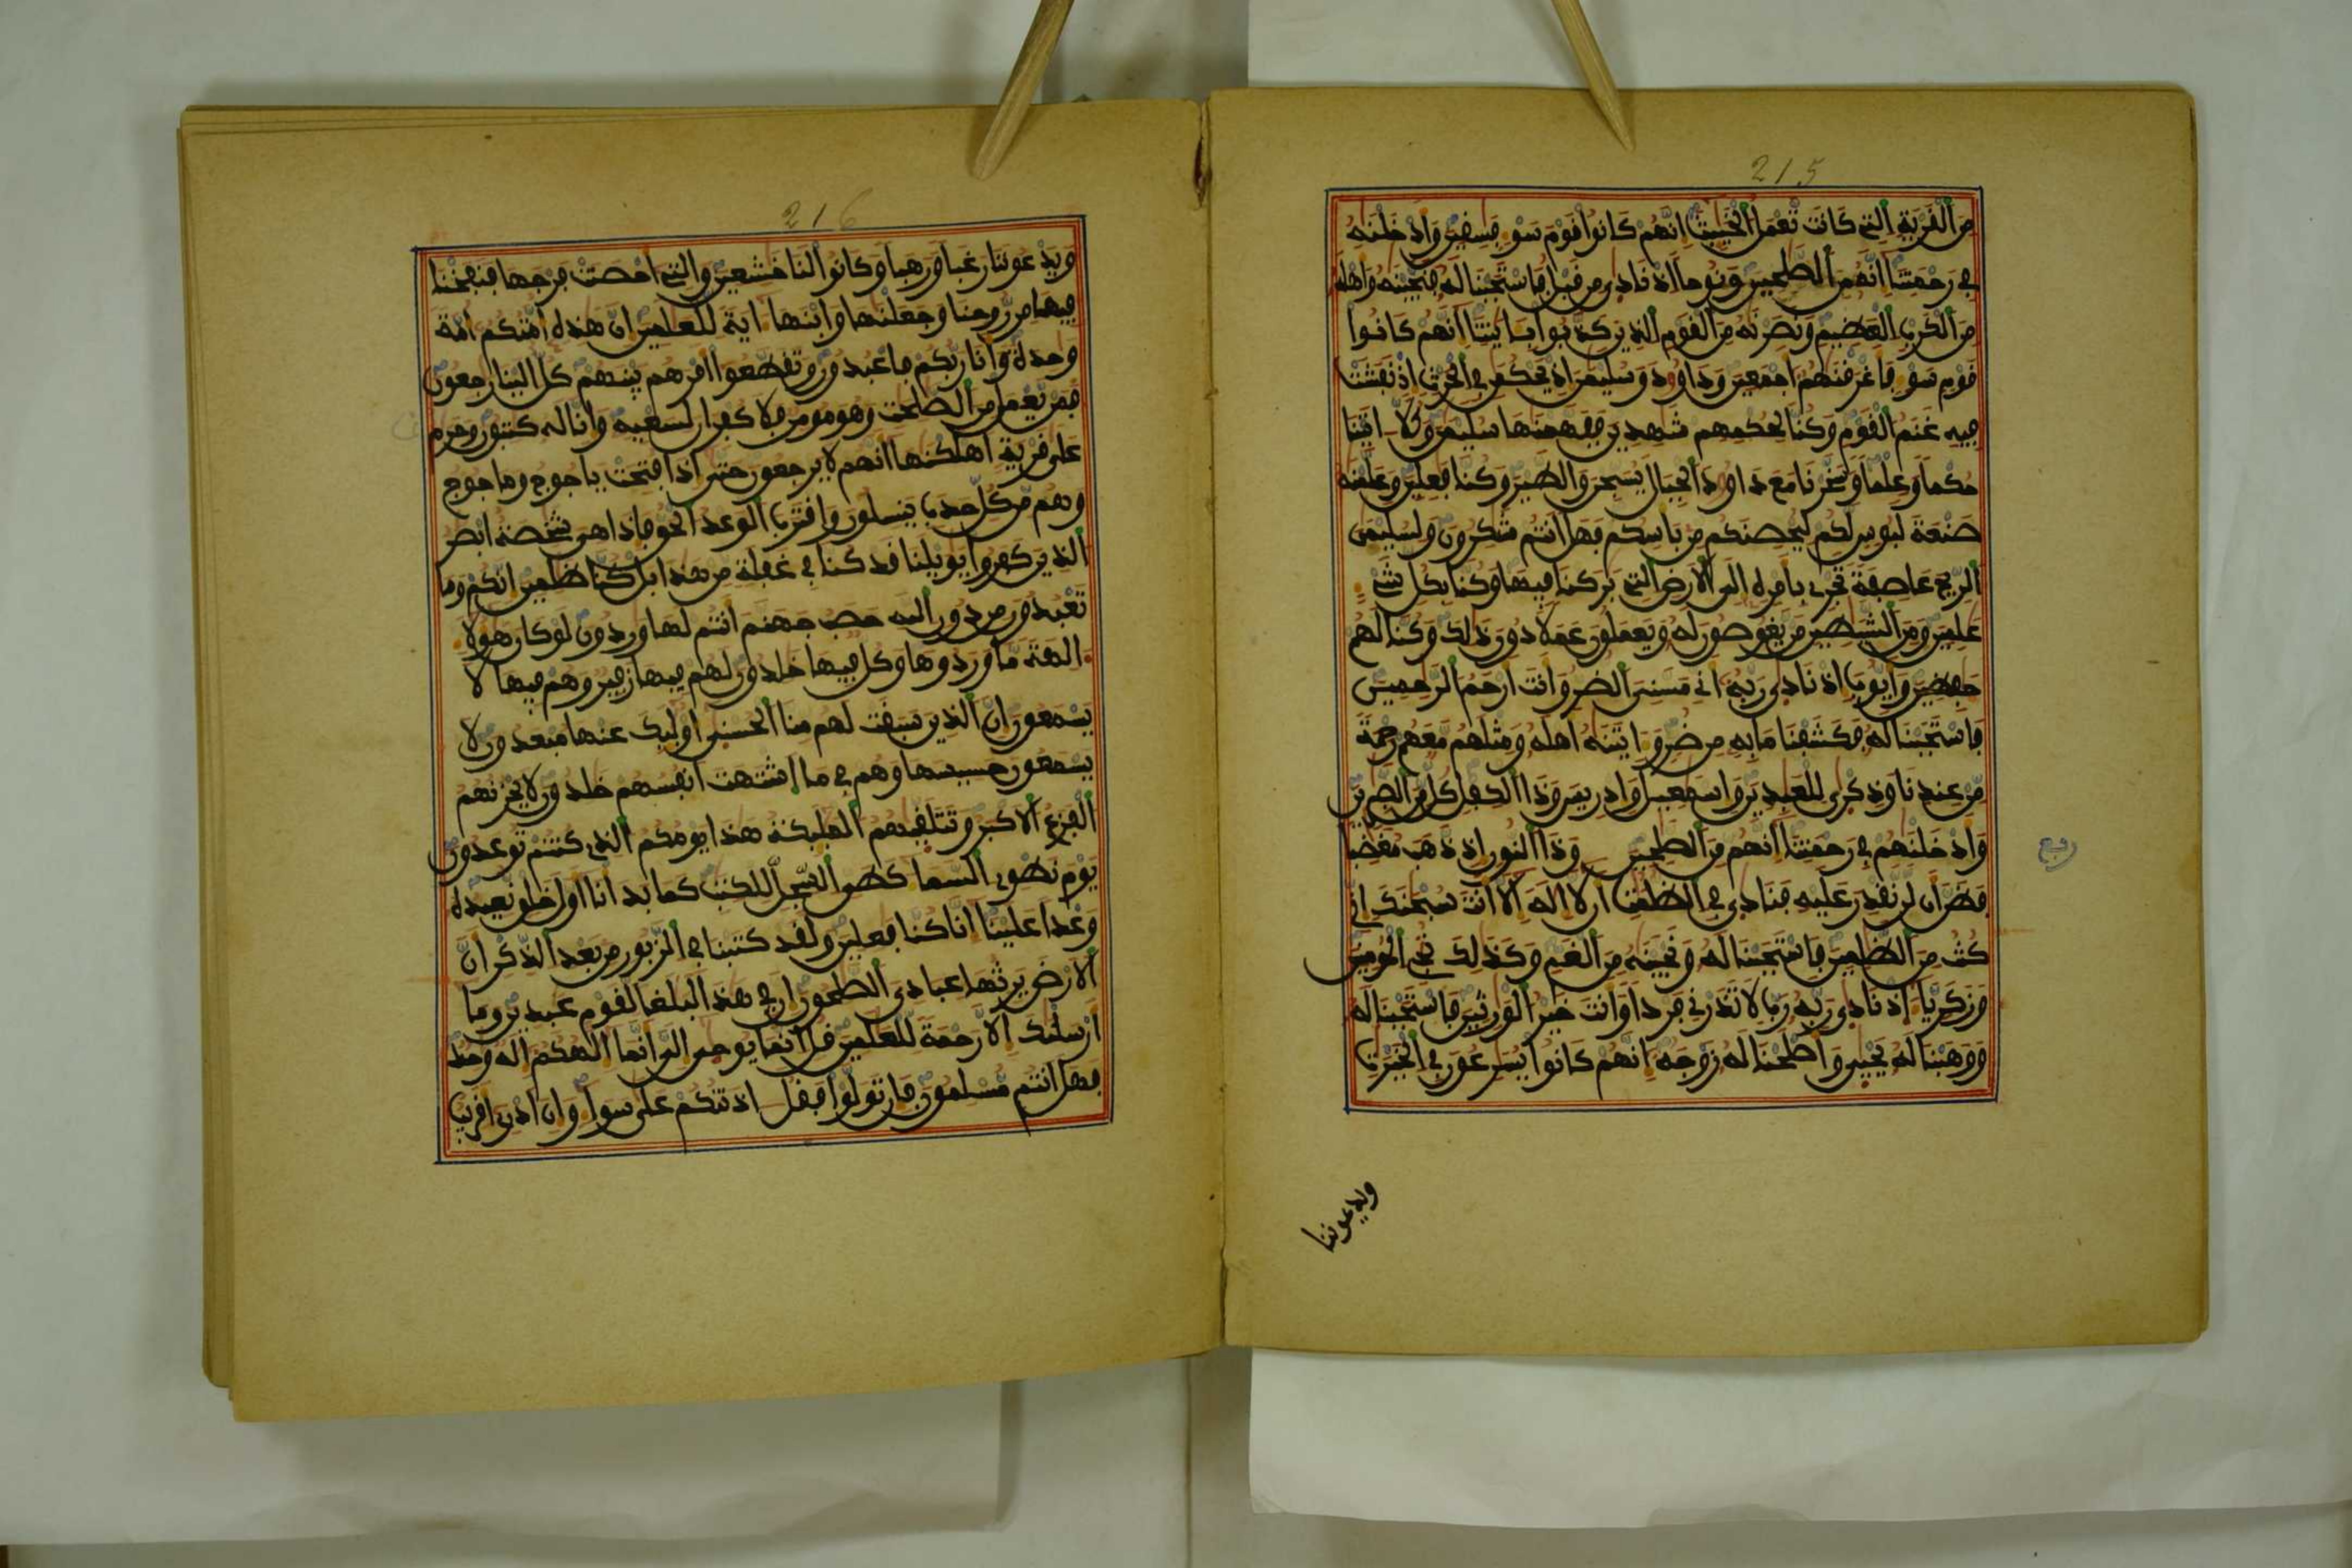 215
مِنَ ٱلْقَرْيَةِ ٱلتِے كَانَت تَّعْمَلُ ٱلْخَبَٰٓئِثَ إِنَّهُمْ كَانُوا۟ قَوْمَ سَوْءٖ فَٰسِقِينَ وَأَدْخَلْنَٰهُ
فِے رَحْمَتِنَآ إِنَّهُۥ مِنَ ٱلصَّٰلِحِينَ وَنُوحاً إِذْ نَادَىٰ مِن قَبْلُ فَاسْتَجَبْنَا لَهُۥ فَنَجَّيْنَٰهُ وَأَهْلَهُۥ
مِنَ ٱلْكَرْبِ ٱلْعَظِيمِ وَنَصَرْنَٰهُ مِنَ ٱلْقَوْمِ ٱلذِينَ كَذَّبُوا۟ بِـَٔايَٰتِنَآ إِنَّهُمْ كَانُوا۟
قَوْمَ سَوْءٖ فَأَغْرَقْنَٰهُمُۥٓ أَجْمَعِينَ وَدَاوُۥدَ وَسُلَيْمَٰنَ إِذْ يَحْكُمَٰنِ فِے ٱلْحَرْثِ إِذْ نَفَشَتْ
فِيهِ غَنَمُ ٱلْقَوْمِ وَكُنَّا لِحُكْمِهِمْ شَٰهِدِينَ فَفَهَّمْنَٰهَا سُلَيْمَٰنَ وَكُلّاً ءَاتَيْنَا
حُكْماً وَعِلْماً وَسَخَّرْنَا مَعَ دَاوُۥدَ ٱلْجِبَالَ يُسَبِّحْنَ وَٱلطَّيْرَ وَكُنَّا فَٰعِلِينَ وَعَلَّمْنَٰهُ
صَنْعَةَ لَبُوسٖ لَّكُمْ لِيُحْصِنَكُم مِّنۢ بَأْسِكُمْ فَهَلَ اَنتُمْ شَٰكِرُونَ وَلِسُلَيْمَٰنَ
ٱلرِّيحَ عَاصِفَةً تَجْرِے بِأَمْرِهِۦٓ إِلَى ٱلَارْضِ ٱلتِے بَٰرَكْنَا فِيهَا وَكُنَّا بِكُلِّ شَےْءٍ
عَٰلِمِينَ وَمِنَ ٱلشَّيَٰطِينِ مَنْ يَّغُوصُونَ لَهُۥ وَيَعْمَلُونَ عَمَلاً دُونَ ذَٰلِكَ وَكُنَّا لَهُمْ
حَٰفِظِينَ وَأَيُّوبَ إِذْ نَادَىٰ رَبَّهُۥٓ أَنِّے مَسَّنِيَ ٱلضُّرُّ وَأَنتَ أَرْحَمُ ٱلرَّٰحِمِينَ
فَاسْتَجَبْنَا لَهُۥ فَكَشَفْنَا مَا بِهِۦ مِن ضُرّٖ وَءَاتَيْنَٰهُ أَهْلَهُۥ وَمِثْلَهُم مَّعَهُمْ رَحْمَةً
مِّنْ عِندِنَا وَذِكْرَىٰ لِلْعَٰبِدِينَ وَإِسْمَٰعِيلَ وَإِدْرِيسَ وَذَا ٱلْكِفْلِ كُلٌّ مِّنَ ٱلصَّٰبِرِينَ
وَأَدْخَلْنَٰهُمْ فِے رَحْمَتِنَآ إِنَّهُم مِّنَ ٱلصَّٰلِحِينَ وَذَا ٱلنُّونِ إِذ ذَّهَبَ مُغَٰضِباً
فَظَنَّ أَن لَّن نَّقْدِرَ عَلَيْهِ فَنَادَىٰ فِے ٱلظُّلُمَٰتِ أَن لَّآ إِلَٰهَ إِلَّآ أَنتَ سُبْحَٰنَكَ إِنِّے
كُنتُ مِنَ ٱلظَّٰلِمِينَ فَاسْتَجَبْنَا لَهُۥ وَنَجَّيْنَٰهُ مِنَ ٱلْغَمِّ وَكَذَٰلِكَ نُۨجِے ٱلْمُومِنِينَ
وَزَكَرِيَّآءَ إِذْ نَادَىٰ رَبَّهُۥ رَبِّ لَا تَذَرْنِے فَرْداً وَأَنتَ خَيْرُ ٱلْوَٰرِثِينَ فَاسْتَجَبْنَا لَهُۥ
وَوَهَبْنَا لَهُۥ يَحْيَىٰ وَأَصْلَحْنَا لَهُۥ زَوْجَهُۥٓ إِنَّهُمْ كَانُوا۟ يُسَٰرِعُونَ فِے ٱلْخَيْرَٰتِ
ربع
ويدعوننا
216
وَيَدْعُونَنَا رَغَباً وَرَهَباً وَكَانُوا۟ لَنَا خَٰشِعِينَ وَٱلتِےٓ أَحْصَنَتْ فَرْجَهَا فَنَفَخْنَا
فِيهَا مِن رُّوحِنَا وَجَعَلْنَٰهَا وَٱبْنَهَآ ءَايَةً لِّلْعَٰلَمِينَ إِنَّ هَٰذِهِۦٓ أُمَّتُكُمُۥٓ أُمَّةً
وَٰحِدَةً وَأَنَا رَبُّكُمْ فَاعْبُدُونِ وَتَقَطَّعُوٓا۟ أَمْرَهُم بَيْنَهُمْ كُلٌّ إِلَيْنَا رَٰجِعُونَ
فَمَنْ يَّعْمَلْ مِنَ ٱلصَّٰلِحَٰتِ وَهُوَ مُومِنٌ فَلَا كُفْرَانَ لِسَعْيِهِۦ وَإِنَّا لَهُۥ كَٰتِبُونَ وَحَرَٰمٌ
عَلَىٰ قَرْيَةٍ أَهْلَكْنَٰهَآ أَنَّهُمْ لَا يَرْجِعُونَ حَتَّىٰٓ إِذَا فُتِحَتْ يَاجُوجُ وَمَاجُوجُ
وَهُم مِّن كُلِّ حَدَبٖ يَنسِلُونَ وَٱقْتَرَبَ ٱلْوَعْدُ ٱلْحَقُّ فَإِذَا هِيَ شَٰخِصَةٌ اَبْصَٰرُ
ٱلذِينَ كَفَرُوا۟ يَٰوَيْلَنَا قَدْ كُنَّا فِے غَفْلَةٖ مِّنْ هَٰذَا بَلْ كُنَّا ظَٰلِمِينَ إِنَّكُمْ وَمَا
تَعْبُدُونَ مِن دُونِ ٱللَّهِ حَصَبُ جَهَنَّمَ أَنتُمْ لَهَا وَٰرِدُونَ لَوْ كَانَ هَٰٓؤُلَآءِ
ءَالِهَةً مَّا وَرَدُوهَا وَكُلٌّ فِيهَا خَٰلِدُونَ لَهُمْ فِيهَا زَفِيرٌ وَهُمْ فِيهَا لَا
يَسْمَعُونَ إِنَّ ٱلذِينَ سَبَقَتْ لَهُم مِّنَّا ٱلْحُسْنَىٰٓ أُو۟لَٰٓئِكَ عَنْهَا مُبْعَدُونَ لَا
يَسْمَعُونَ حَسِيسَهَا وَهُمْ فِے مَا ٱشْتَهَتَ اَنفُسُهُمْ خَٰلِدُونَ لَا يَحْزُنُهُمُ
ٱلْفَزَعُ ٱلَاكْبَرُ وَتَتَلَقَّيٰهُمُ ٱلْمَلَٰٓئِكَةُ هَٰذَا يَوْمُكُمُ ٱلذِے كُنتُمْ تُوعَدُونَ
يَوْمَ نَطْوِے ٱلسَّمَآءَ كَطَيِّ ٱلسِّجِلِّ لِلْكِتَٰبِ كَمَا بَدَأْنَآ أَوَّلَ خَلْقٖ نُّعِيدُهُۥ
وَعْداً عَلَيْنَآ إِنَّا كُنَّا فَٰعِلِينَ وَلَقَدْ كَتَبْنَا فِے ٱلزَّبُورِ مِنۢ بَعْدِ ٱلذِّكْرِ أَنَّ
ٱلَارْضَ يَرِثُهَا عِبَادِيَ ٱلصَّٰلِحُونَ إِنَّ فِے هَٰذَا لَبَلَٰغاً لِّقَوْمٍ عَٰبِدِينَ وَمَآ
أَرْسَلْنَٰكَ إِلَّا رَحْمَةً لِّلْعَٰلَمِينَ قُلِ اِنَّمَا يُوحَىٰٓ إِلَيَّ أَنَّمَآ إِلَٰهُكُمُۥٓ إِلَٰهٌ وَٰحِدٌ
فَهَلَ اَنتُم مُّسْلِمُونَ فَإِن تَوَلَّوْا۟ فَقُلَ اٰذَنتُكُمْ عَلَىٰ سَوَآءٖ وَإِنَ اَدْرِےٓ أَقَرِيبٌ